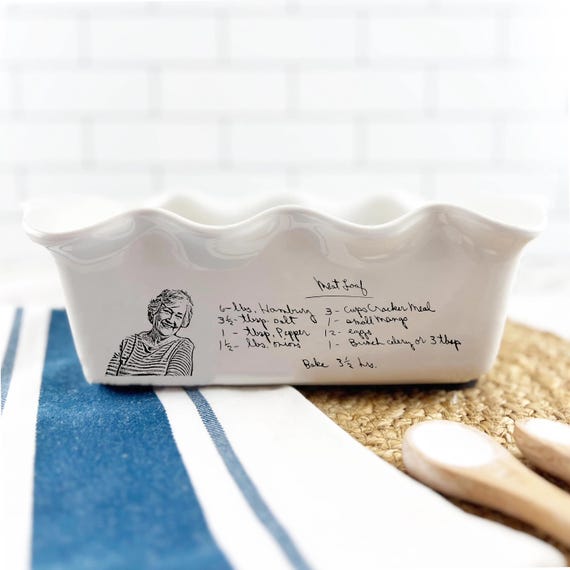 Meat Loaf
6 - lbs. Hamburg
3½ - tbsp. salt
1 - tbsp. Pepper
1½ - lbs. onions
3 - cups Cracker Meal
1 - small mango
12 - eggs
1 - Bunch celery or 3 tbsp
Bake 3½ hrs.